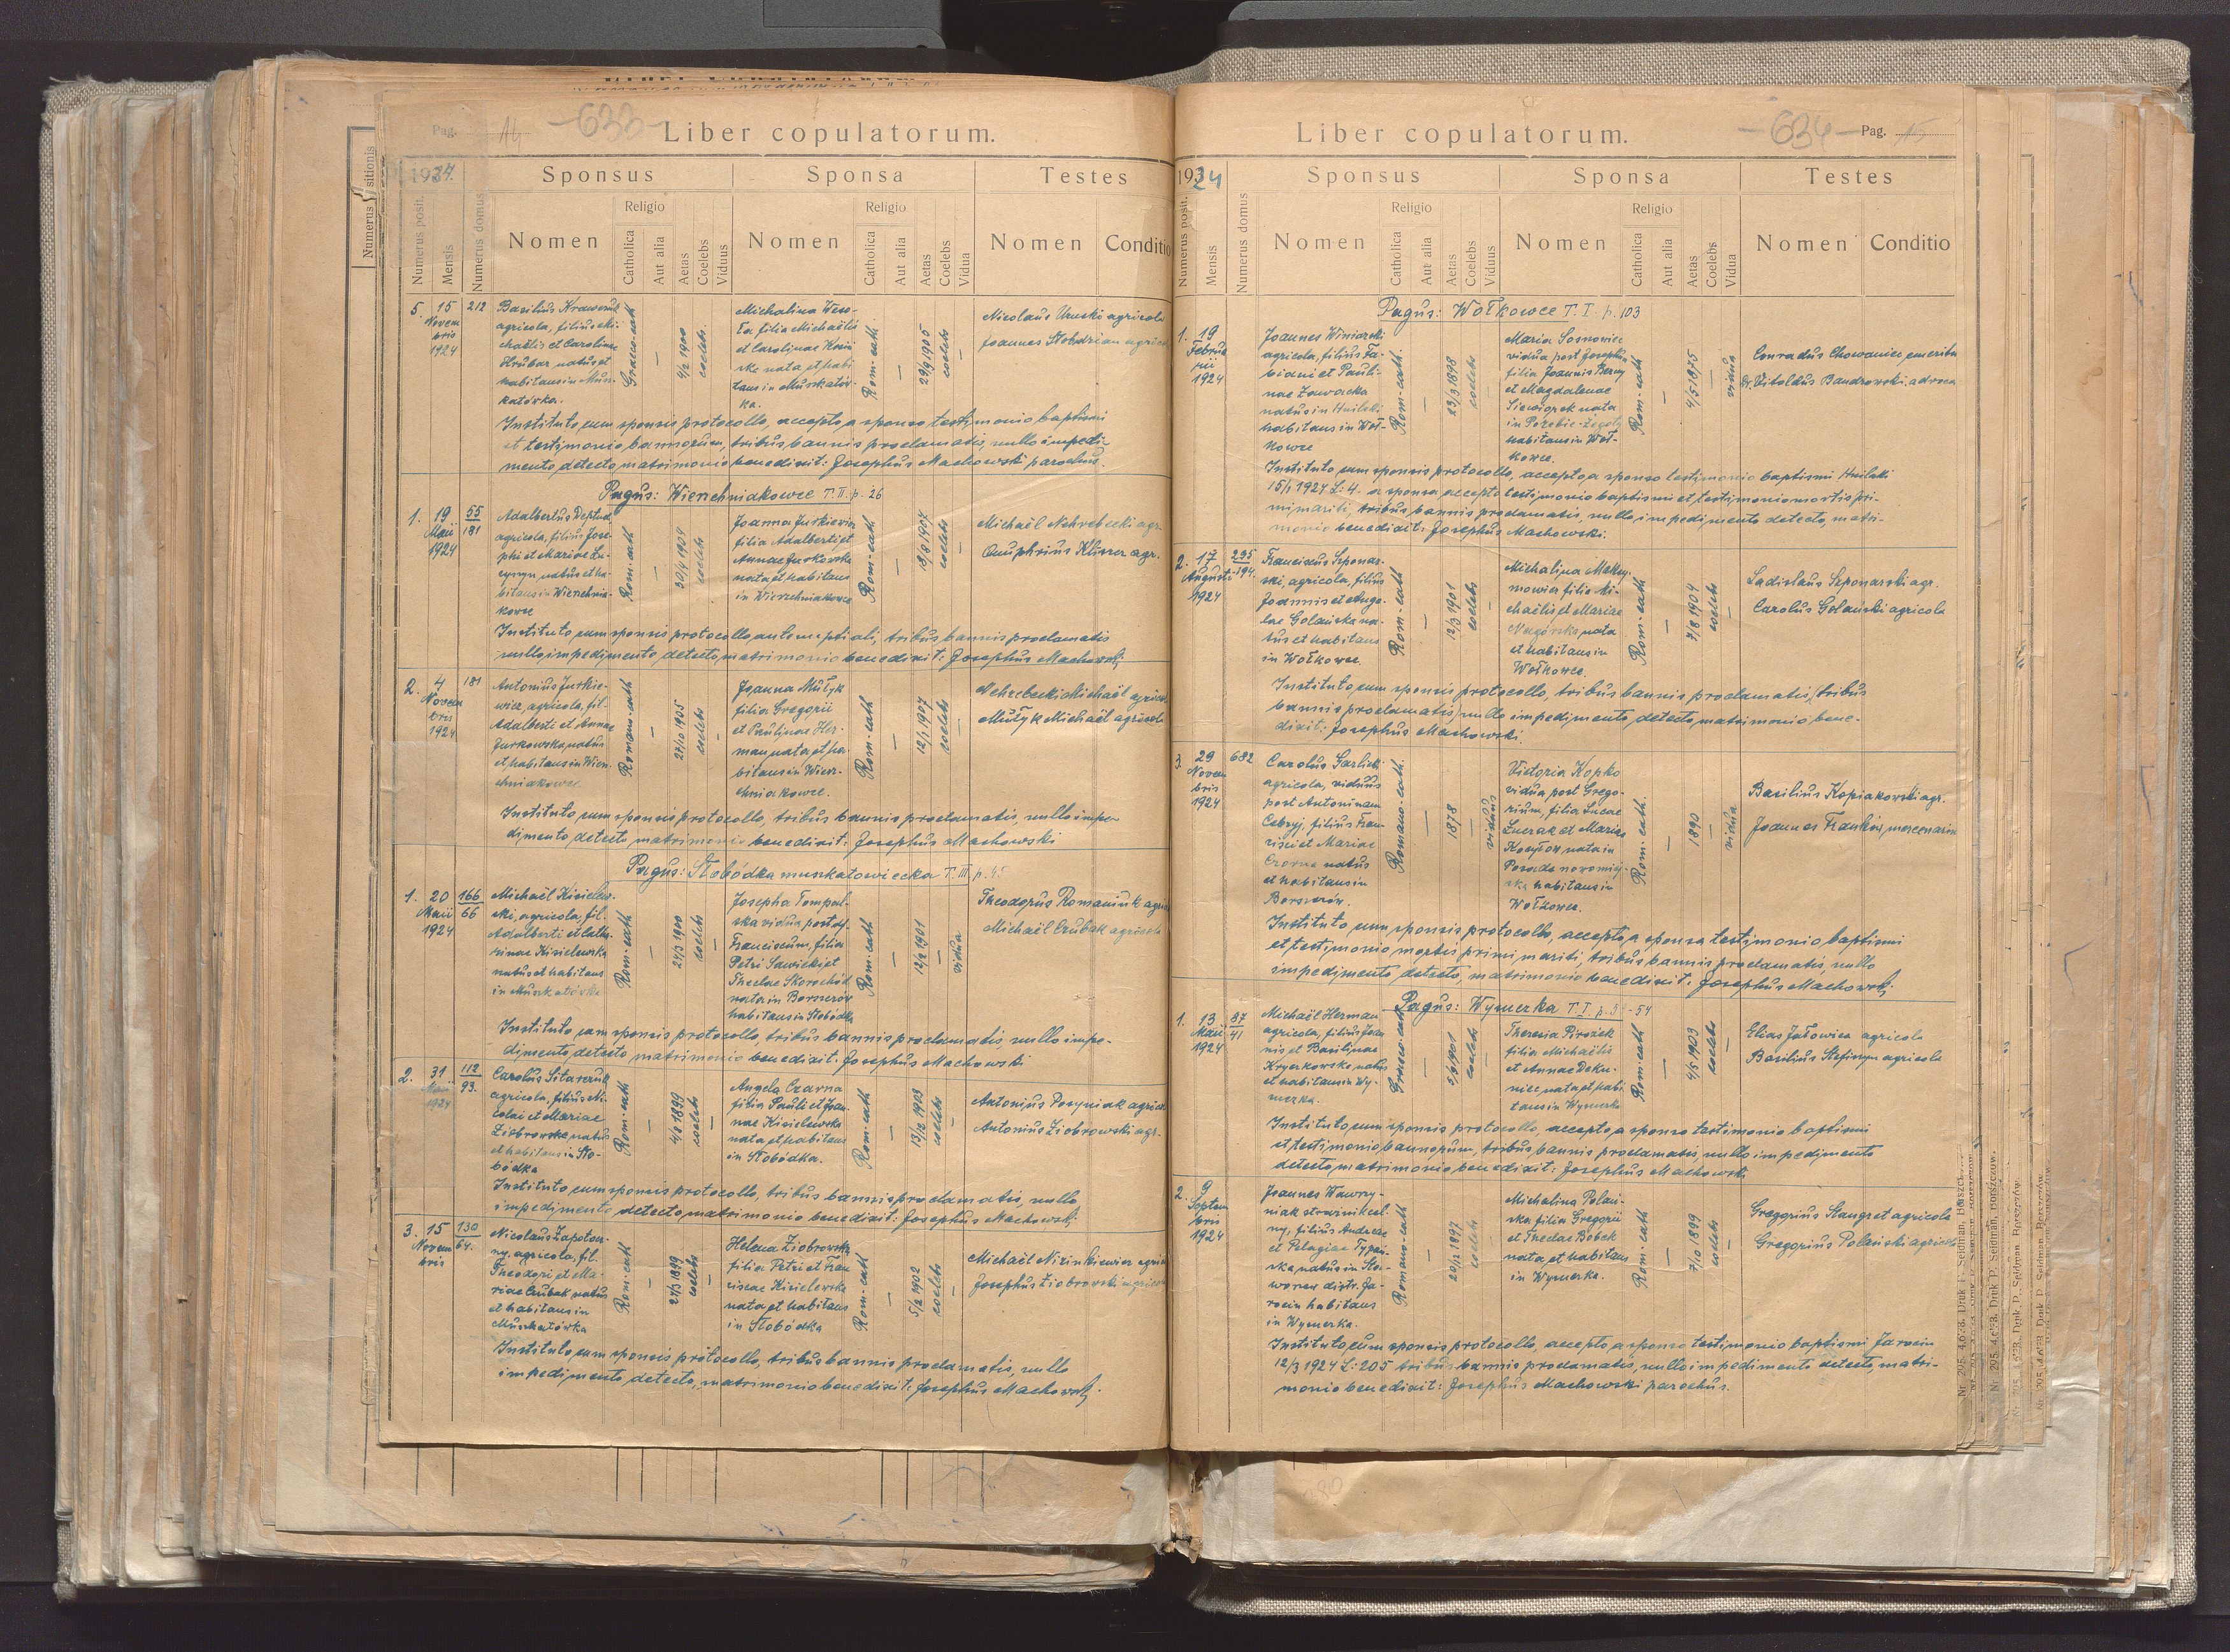 Pag. 14 -633-
Liber copulatorum.
1924.
Sponsus Sponsa Testes
Numerus posit. Mensis Numerus domus
Nomen Religio Catholica Aut alia Aetas Coelebs Viduus
Nomen Religio Catholica Aut alia Aetas Coelebs Vidua
Nomen Conditio
5. 15 Novembris 1924 212
Basilius Krawczuk
agricola, filius Mi-
chaëlis et Carolinae
Hrubar natus et
habitans in Musz-
katówka.
Graeco-cath
—
4/2 1900
coelebs
Michalina Weso-
ła filia Michaëlis
et Carolinae
nata et habi
tans in Muszkatów-
ka.
Rom-cath
—
29/9 1905
coelebs
—
Nicolaus Uruski agricola
Joannes Słobodzian agricola
Instituto cum sponsis protocollo, accepto a sponso testimonio baptismi
et testimonio bannorum, tribus bannis proclamatis, nullo impedi-
mento detecto matrimonio benedixit: Josephus Machowski parochus.
Pagus: Wierzchniakowce T. II. p. 26
1. 19 Maii 1924 55 181
Adalbertus Deptuch
agricola, filius Jose-
phi et Mariae
natus et ha-
bitans in Wierzchnia-
kowce
Rom-cath
—
30/4 1901
coelebs
Joanna Jurkiewicz
filia Adalberti et
Annae Jurkowska
nata et habitans
in Wierzchniakowce
Rom-cath
—
18/8 1907
coelebs
—
Michaël Nehrebecki agr.
Onuphrius Kliszcz agr.
Instituto cum sponsis protocollo antenuptiali, tribus bannis proclamatis
nullo impedimento detecto, matrimonio benedixit: Josephus Machowski
2. 4 Novembris 1924 181
Antonius Jurkie-
wicz, agricola, fil-
Adalberti et Annae
Jurkowska natus
et habitans in Wierz-
chniakowce
Romano-cath
—
27/10 1905
coelebs
—
Joanna Mułyk
filia Gregorii
et Paulinae Her-
man nata et ha-
bitans in Wierz-
chniakowce.
Rom-cath
—
12/1 1907
coelebs
—
Nehrebecki Michaël agricola
Mułyk Michaël agricola
Instituto cum sponsis protocollo, tribus bannis proclamatis, nullo impe-
dimento detecto matrimonio benedixit: Josephus Machowski
Pagus: Słobódka muszkatowiecka T. III. p. 45
1. 20 Maii 1924 166 66
Michaël Kisielew-
ski, agricola, fil-
Adalberti et Catha
rinae Kisielewska
natus et habitans
in Muszkatówka
Rom-cath
—
24/3 1900
coelebs
—
Josepha Tompal-
ska vidua post
Franciscum, filia
Petri Sawicki et
Theclae Skorochód
nata in Borszczów
habitans in Słobódka
Rom-cath
—
12/2 1901
—
vidua
Theodorus Romaniuk agricola
Michaël Czubak agricola
Instituto cum sponsis protocollo, tribus bannis proclamatis, nullo impe-
dimento detecto matrimonio benedixit. Josephus Machowski
2. 31 Maii 1924 112 93.
Carolus Sitarczuk
agricola, filius Ni-
colai et Mariae
Ziobrowska natus
et habitans in Sło-
bódka
Rom-cath
—
4/8 1899
coelebs
—
Angela Czarna
filia Pauli et Joan-
nae Kisielewska
nata et habitans
in Słobódka.
Rom-cath
—
13/12 1903
coelebs
—
Antonius Posyniak agricola
Antonius Ziobrowski agr-
Instituto cum sponsis protocollo, tribus bannis proclamatis, nullo
impedimento detecto matrimonio benedixit: Josephus Machowski
3. 15 Novembris 130 64.
Nicolaus Zapotocz-
ny, agricola, fil.
Theodori et Ma-
riae Czubak natus
et habitans in
Muszkatówka
Rom-cath
—
24/3 1899
coelebs
—
Helena Ziobrowska
filia Petri et Fran
ciscae Kisielewska
nata et habitans
in Słobódka
Rom-cath
—
5/2 1902
coelebs
—
Michaël Nizinkiewicz agricola
Josephus Ziobrowski agricola
Instituto cum sponsis protocollo, tribus bannis proclamatis, nullo
impedimento detecto, matrimonio benedixit: Josephus Machowski.
Liber copulatorum.
-634- Pag. 15
1924
Sponsus Sponsa Testes
Numerus posit. Mensis Numerus domus
Nomen Religio Catholica Aut alia Aetas Coelebs Viduus
Nomen Religio Catholica Aut alia Aetas Coelebs Vidua
Nomen Conditio
Pagus: Wołkowce T. I. p. 103
1. 19 Februarii 1924
Joannes Winiarski
agricola, filius Fa-
biani et Pauli-
nae Zawacka
natus in Hnilcki
habitans in Woł-
kowce
Rom-cath.
—
23/3 1898
coelebs
—
Maria Sosnowicz
vidua post Josephum
filia Joannis
et Magdalenae
Siewiorek nata
in Poręba-Żegoty
habitans in Woł-
kowce.
Rom-cath
—
4/5 1875
—
vidua
Conradus Chowaniec
Dr. Vitoldus Bandrowski, advoca
Instituto cum sponsis protocollo, accepto a sponso testimonio baptismi Hnilcki
15/1 1924 L: 4. a sponsa accepto testimonio baptismi et testimonio mortis pri-
mi mariti, tribus bannis proclamatis, nullo impedimento detecto, matri-
monio benedixit: Josephus Machowski.
2. 17 Augusti 1924 235 194.
Franciscus Szponar-
ski, agricola, filius
Joannis et Ange-
lae Golańska na-
tus et habitans
in Wołkowce.
Rom-cath
—
12/3 1901
coelebs
—
Michalina Maksy-
mowicz filia Mi-
chaëlis et Mariae
Nagórska nata
et habitans in
Wołkowce.
Rom-cath
—
7/8 1904
coelebs
—
Ladislaus Szponarski agr.
Carolus Golański agricola
Instituto cum sponsis protocollo, tribus bannis proclamatis (tribus
bannis proclamatis) nullo impedimento detecto matrimonio bene-
dixit: Josephus Machowski.
3. 29 Novembris 1924 682
Carolus Garlicki
agricola, viduus
post Antoninam
Cebryj, filius Fran-
cisci et Mariae
Czorna natus
et habitans in
Borszczów.
Romano-cath.
—
1878
—
viduus
Victoria Kopko
vidua post Grego-
rium, filia Lucae
et Mariae
nata in
Posada nowomiej-
ska habitans in
Wołkowce.
Rom-cath.
—
1890
—
vidua
Basilius Kopiakowski agr.
Joannes Frankiw, mercenarius
Instituto cum sponsis protocollo, accepto a sponsa testimonio baptismi
et testimonio mortis primi mariti, tribus bannis proclamatis, nullo
impedimento detecto, matrimonio benedixit. Josephus Machowski
Pagus: Wymerka T. I. p. 54
1. 13 Maii 1924 87 41
Michaël Herman
agricola, filius Joan
nis et Basilinae
natus
et habitans in Wy-
merka.
Graeco-cath
—
1901
coelebs
—
Theresia Pirożek
filia Michaëlis
et Annae Doku-
nicz nata et habi-
tans in Wymerka
Rom-cath
—
4/5 1903
coelebs
—
Elias Jałowiec agricola
Basilius Stefinyn agricola
Instituto cum sponsis protocollo, accepto a sponso testimonio baptismi
et testimonio bannorum, tribus bannis proclamatis, nullo impedimento
detecto matrimonio benedixit: Josephus Machowski
2. 9 Septembris 1924
Joannes Wawrzy-
niak strażnik cel-
ny, filius Andreae
et Pelagiae Typań-
ska natus in
distr. Ja-
rocin habitans
in Wymerka.
Romano-cath
—
20/12 1897
coelebs
—
Michalina Polań-
ska filia Gregorii
et Theclae Bobek
nata et habitans
in Wymerka.
Rom-cath
—
7/10 1899
coelebs
—
Gregorius Stangret agricola
Gregorius Polański agricola
Instituto cum sponsis protocollo, accepto a sponso testimonio baptismi Jarocin
12/3 1924 L: 205 tribus bannis proclamatis, nullo impedimento detecto, matri-
monio benedixit: Josephus Machowski parochus.